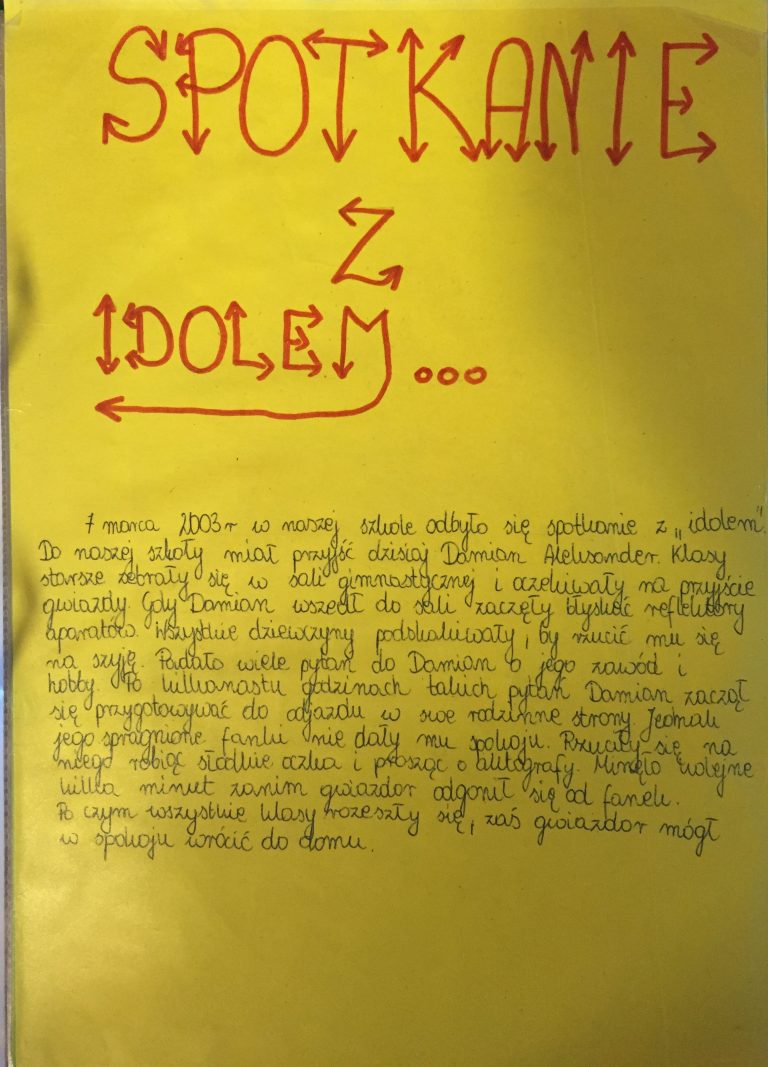 SPOTKANIE
Z
IDOLEM...
7 marca 2003r w naszej szkole odbyło się spotkanie z „idolem”.
Do naszej szkoły miał przyjść dzisiaj Damian Aleksander. Klasy
starsze zebrały się w sali gimnastycznej i oczekiwały na przyjście
gwiazdy. Gdy Damian wszedł do sali zaczęły błyskać reflektory
aparatów. Wszystkie dziewczyny podskakiwały, by rzucić mu się
na szyję. Padało wiele pytań do Damian o jego zawód i
hobby. Po kilkunastu godzinach takich pytań Damian zaczął
się przygotowywać do odjazdu w swe rodzinne strony. Jednak
jego spragnione fanki nie dały mu spokoju. Rzuciły się na
niego robiąc słodkie oczka i prosząc o autografy. Minęło kolejne
kilka minut zanim gwiazdor odgonił się od fanek.
Po czym wszystkie klasy rozeszły się, zaś gwiazdor mógł
w spokoju wrócić do domu.